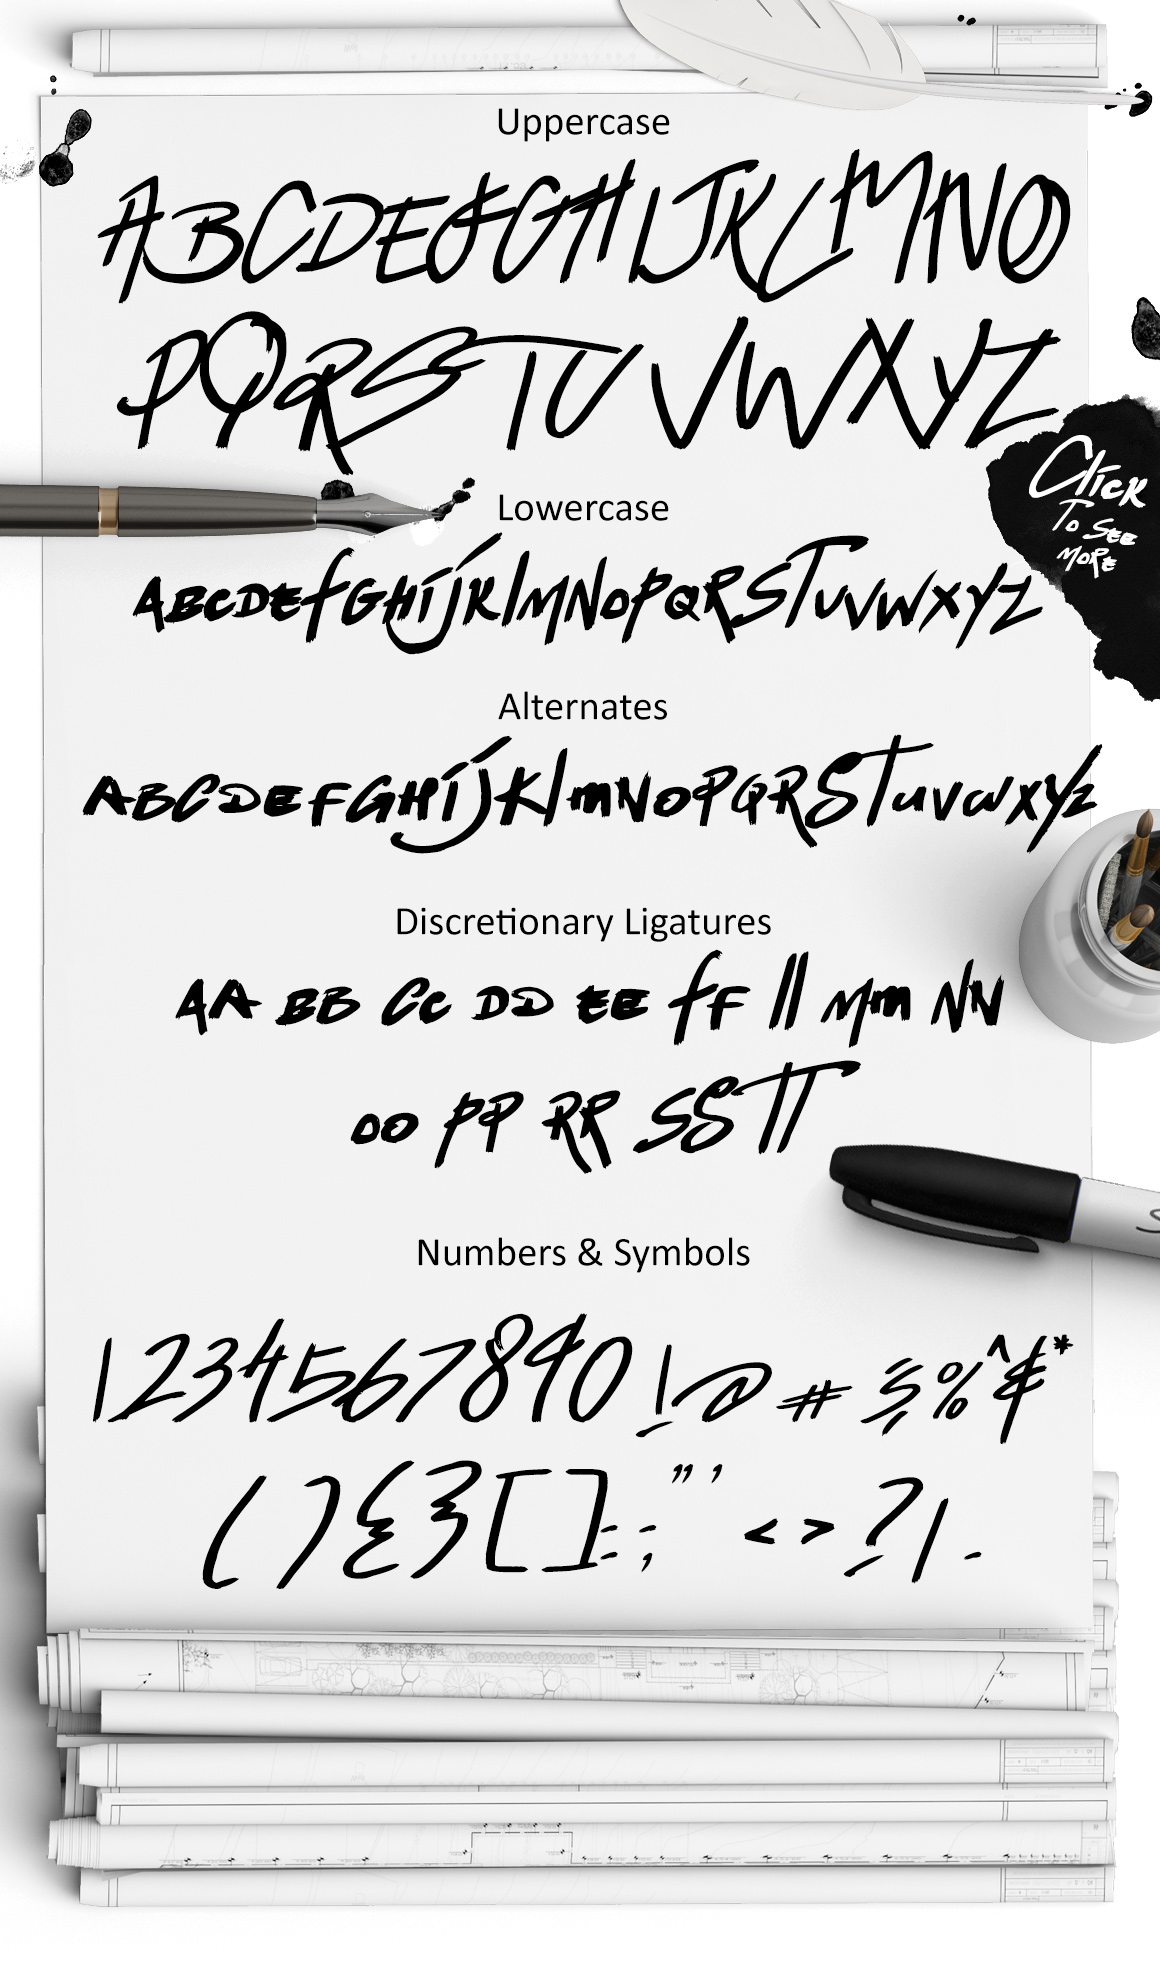 Uppercase
ABCDEFGHIJKLMNO
PQRSTUVWXYZ
Click
To see
more
Lowercase
ABCDEfGHiJKlMNOPQRSTUVWXYZ
Alternates
ABCDEFGHiJKlmNOPQRSTuvwxyz
Discretionary Ligatures
AA BB Cc DD EE fF ll Mm NN
oo PP RR SS TT
Numbers & Symbols
1234567890!@#$%^&*
(){}[]:;"'<>?/.